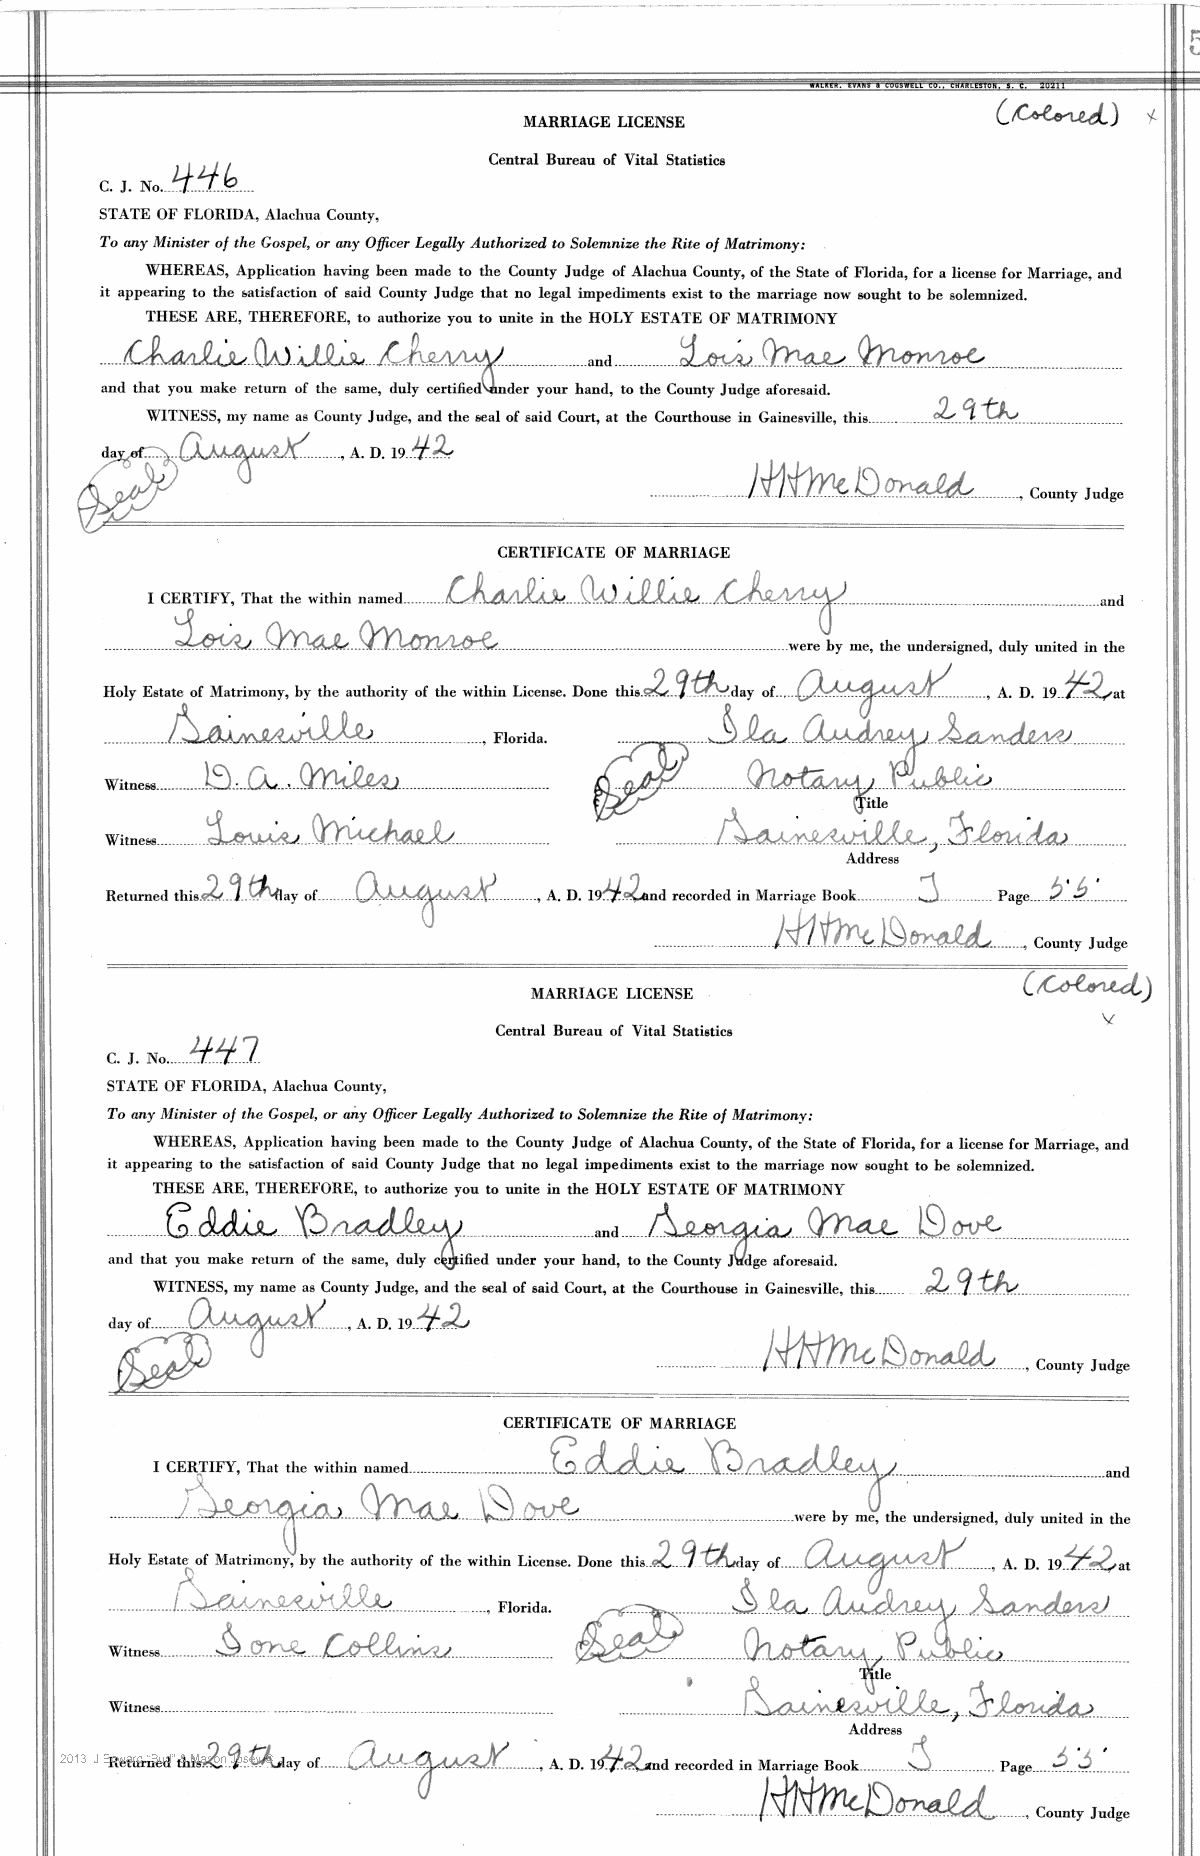 5
WALKER, EVANS & COGSWELL CO., CHARLESTON, S. C. 20211
(Colored) x
MARRIAGE LICENSE
Central Bureau of Vital Statistics
C. J. No. 446
STATE OF FLORIDA, Alachua County,
To any Minister of the Gospel, or any Officer Legally Authorized to Solemnize the Rite of Matrimony:
WHEREAS, Application having been made to the County Judge of Alachua County, of the State of Florida, for a license for Marriage, and
it appearing to the satisfaction of said County Judge that no legal impediments exist to the marriage now sought to be solemnized.
THESE ARE, THEREFORE, to authorize you to unite in the HOLY ESTATE OF MATRIMONY
Charlie Willie Cherry and Lois Mae Monroe
and that you make return of the same, duly certified under your hand, to the County Judge aforesaid.
WITNESS, my name as County Judge, and the seal of said Court, at the Courthouse in Gainesville, this 29th
day of August, A. D. 1942
Seal
HHMcDonald, County Judge
CERTIFICATE OF MARRIAGE
I CERTIFY, That the within named Charlie Willie Cherry and
Lois Mae Monroe were by me, the undersigned, duly united in the
Holy Estate of Matrimony, by the authority of the within License. Done this 29th day of August, A. D. 1942, at
Gainesville, Florida. Ila Audrey Sanders
Witness D. A. Miles Seal Notary Public
Title
Witness Louis Michael Gainesville, Florida
Address
Returned this 29th day of August, A. D. 1942 and recorded in Marriage Book J Page 55
HHMcDonald, County Judge
(Colored)
x
MARRIAGE LICENSE
Central Bureau of Vital Statistics
C. J. No. 447
STATE OF FLORIDA, Alachua County,
To any Minister of the Gospel, or any Officer Legally Authorized to Solemnize the Rite of Matrimony:
WHEREAS, Application having been made to the County Judge of Alachua County, of the State of Florida, for a license for Marriage, and
it appearing to the satisfaction of said County Judge that no legal impediments exist to the marriage now sought to be solemnized.
THESE ARE, THEREFORE, to authorize you to unite in the HOLY ESTATE OF MATRIMONY
Eddie Bradley and Georgia Mae Dove
and that you make return of the same, duly certified under your hand, to the County Judge aforesaid.
WITNESS, my name as County Judge, and the seal of said Court, at the Courthouse in Gainesville, this 29th
day of August, A. D. 1942
Seal
HHMcDonald, County Judge
CERTIFICATE OF MARRIAGE
I CERTIFY, That the within named Eddie Bradley and
Georgia Mae Dove were by me, the undersigned, duly united in the
Holy Estate of Matrimony, by the authority of the within License. Done this 29th day of August, A. D. 1942 at
Gainesville, Florida. Ila Audrey Sanders
Witness Ione Collins Seal Notary Public
Title
Witness Gainesville, Florida
Address
2013 J
Returned this 29th day of August, A. D. 1942 and recorded in Marriage Book J Page 55
HHMcDonald, County Judge